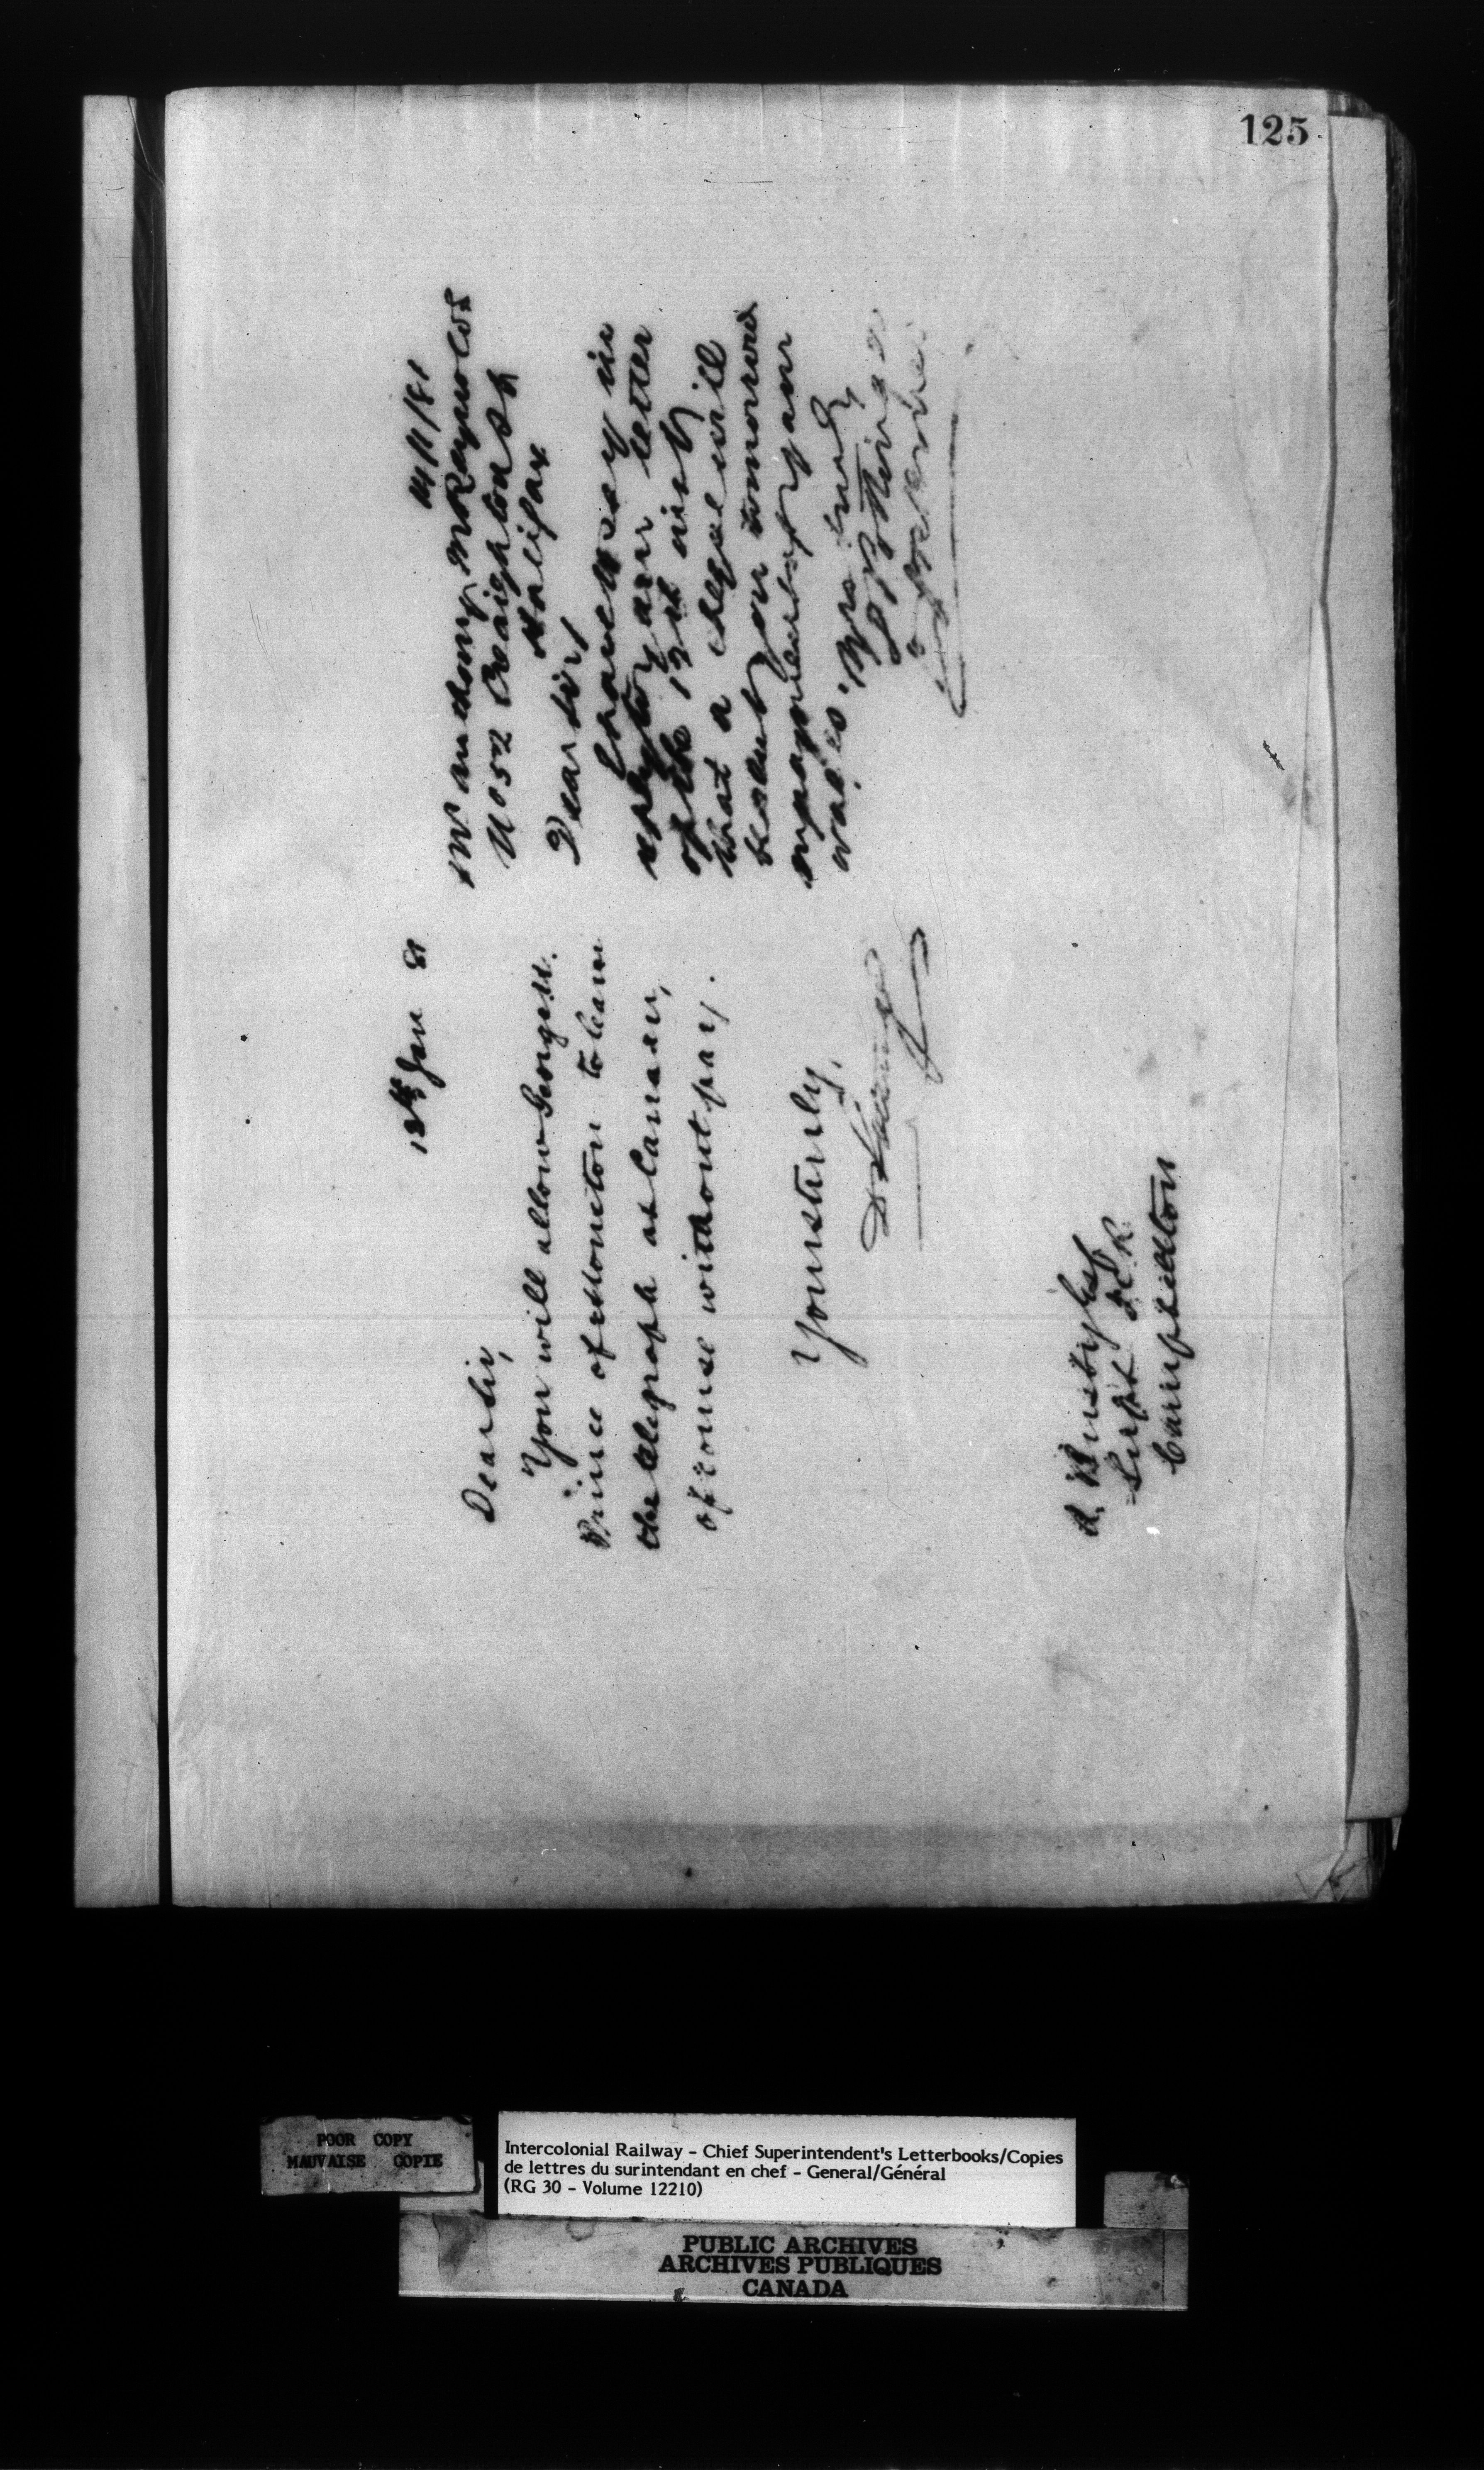 125
13th Jan 81
Dear Sir,
You will allow George M.
Prince of Moncton to learn
the telegraph at Canaan,
of course without pay.
Yours truly,
A. Busby Esq
Supt I.C.R.
Campbellton
14/1/81
Mr Anthony McReynolds
No 52 Creighton St
Halifax
Dear Sir,
I have to say in
reply to your letter
of the 12th inst
that a cheque will
be sent you tomorrow
in payment of your
wages. Yrs truly
POOR COPY
MAUVAISE COPIE
Intercolonial Railway - Chief Superintendent's Letterbooks/Copies
de lettres du surintendant en chef - General/Général
(RG 30 - Volume 12210)
PUBLIC ARCHIVES
ARCHIVES PUBLIQUES
CANADA